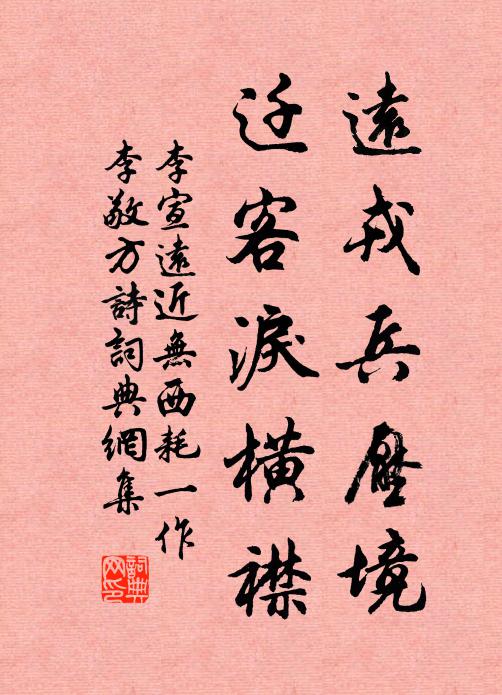 遠戎兵壓境
迁客淚橫襟
李宣遠近無西耗一作
李敬方詩詞典網集
詞典
网印